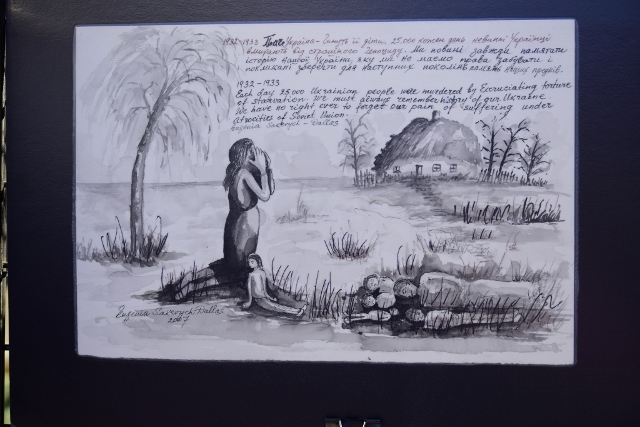 1932-1933 Плаче Україна - Гинуть її діти, 25.000 кожен день невинні Українці
вмирають від страшного Геноциду. Ми повинні завжди памятати
історію Нашої України, яку ми не маємо права забувати і
покликані зберегти для наступних поколінь память наших предків.
1932-1933
Each day 25000 Ukrainian people were murdered by Excruciating torture
of starvation. We must always remember history of our Ukraine
We have no right ever to forget our pain of suffering under
Atrocities of Soviet Union.
Eugenia Sakevych - Dallas
Eugenia Sakevych-Dallas
2007